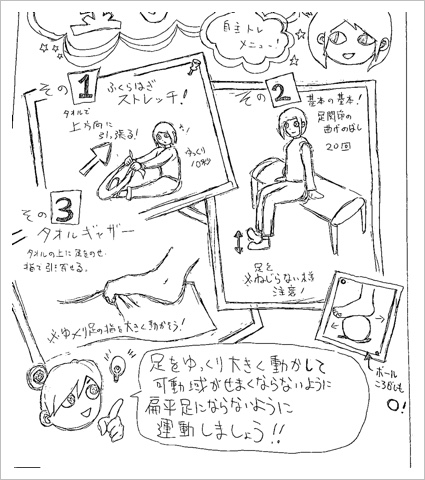 自主トレ
メニュー!
その1
ふくらはぎ
ストレッチ!
タオルで
上方向に
引っ張る!
ゆっくり
10秒
その2
基本の基本!
足関節の
曲げのばし
20回
足を
ねじらない様
注意!
その3
タオルギャザー
タオルの上に足をのせ
指で引き寄せる。
※ゆっくり足の指を大きく動かそう!
ボール
ころがしも
○!
足をゆっくり大きく動かして
可動域がせまくならないように
扁平足にならないように
運動しましょう!!